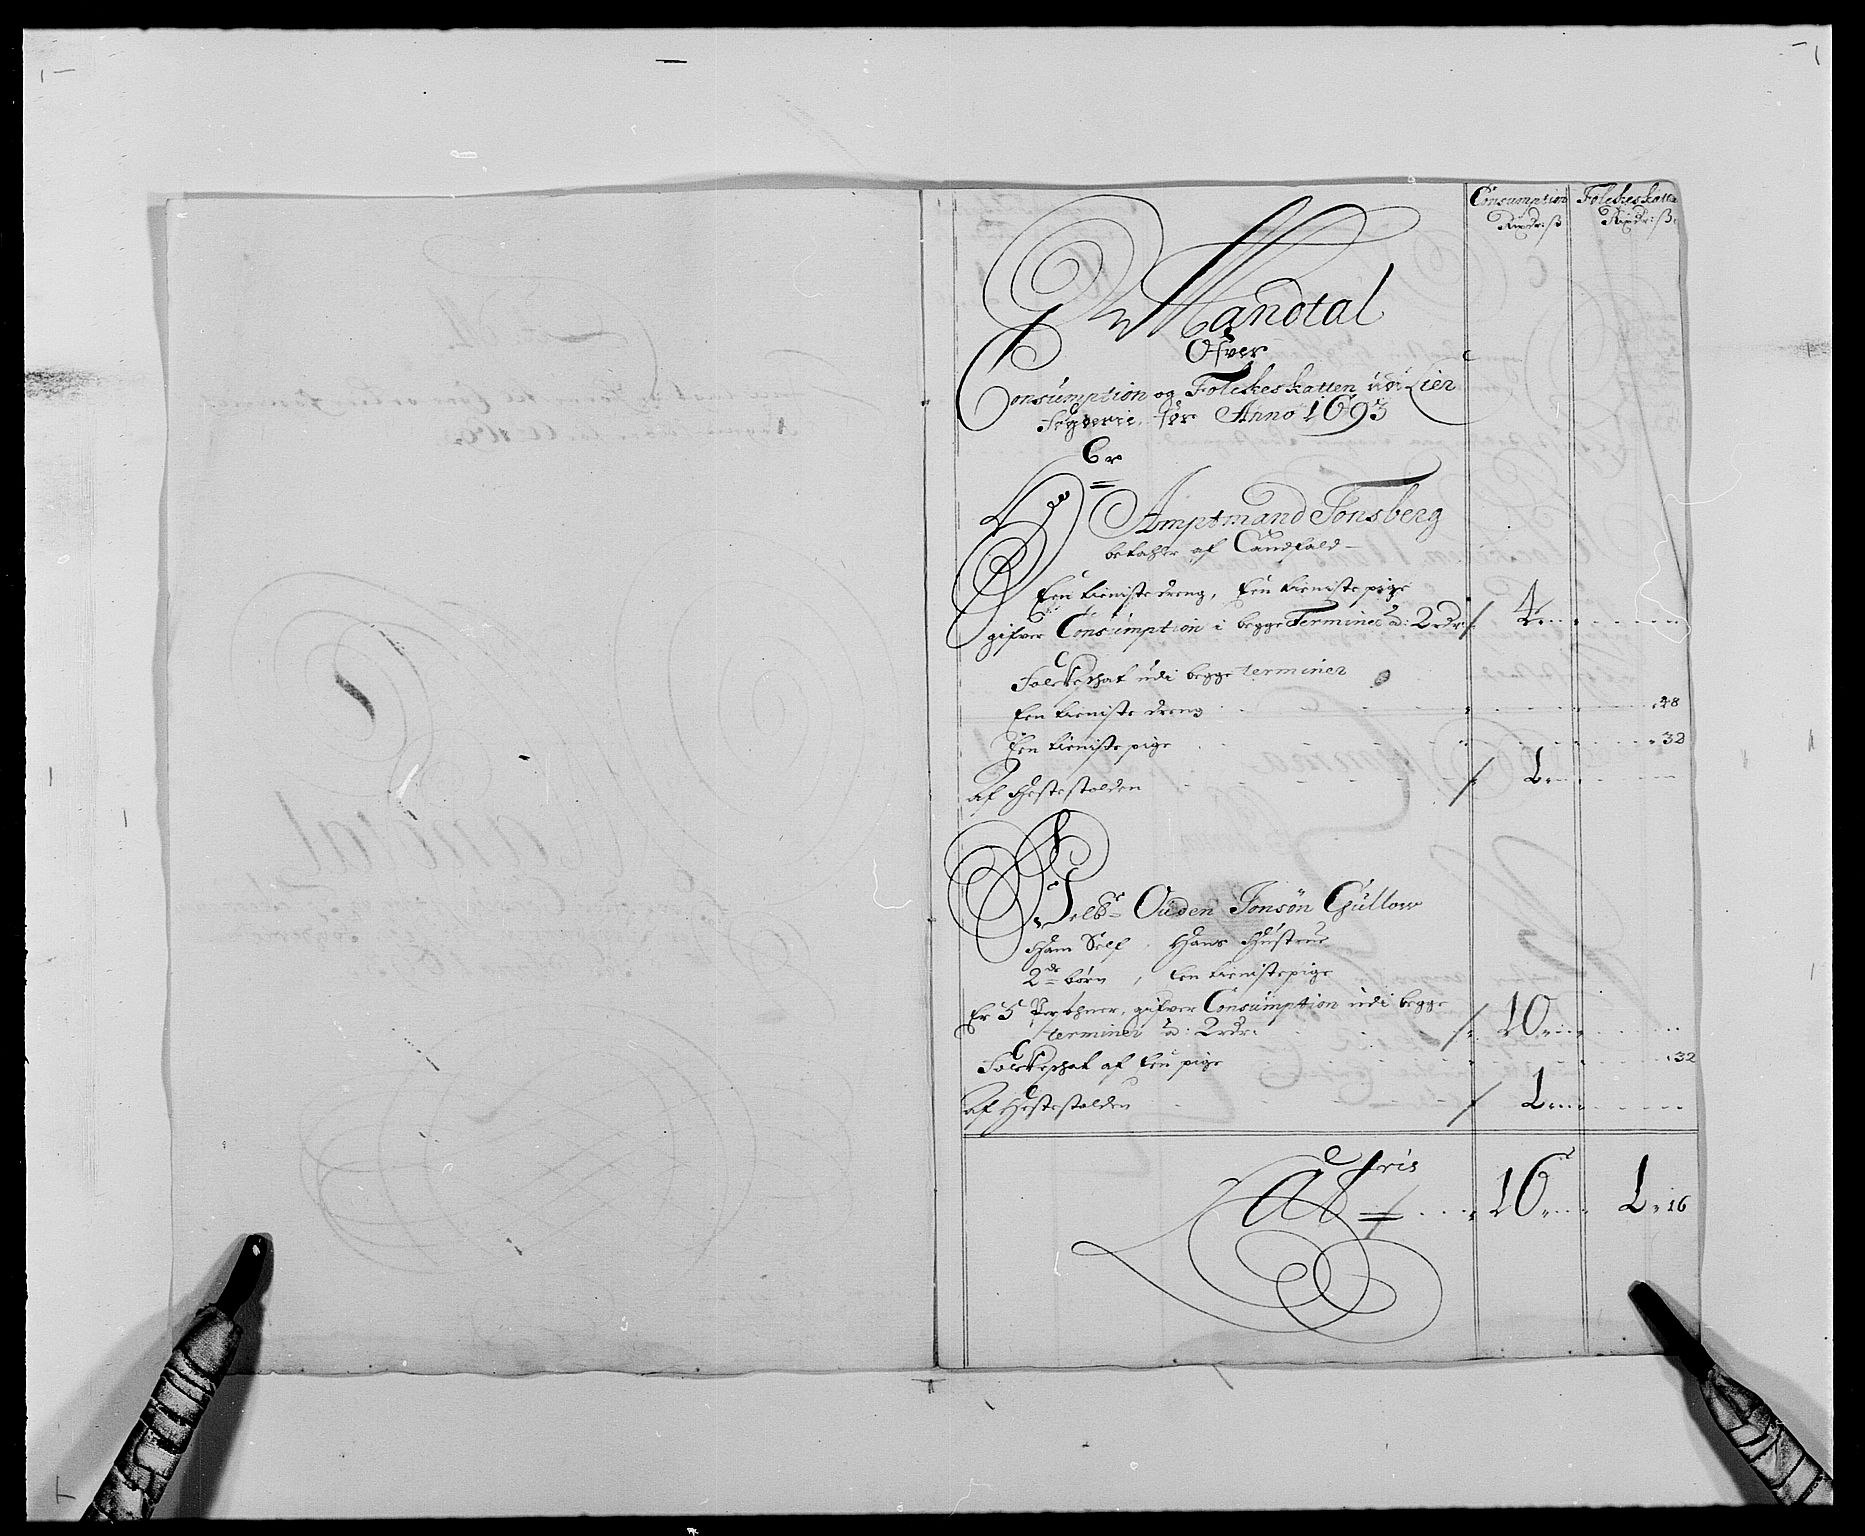 Consumption Folckeskatten
Rixdr: ß Rixdr: ß
Mandtal
Ofver
Consumption og Folckeskatten udi Lier
Fogderie for Anno 1693
Er
Hr Amptmand Tonsberg
betahler af
Een tieniste dreng, Een tieniste pige
gifver Consumption i begge Terminer â: 2 rdr: 4
Folckeschat udi begge terminer
Een tieniste dreng 48
Een tieniste pige 32
Af Hestestolden 1
Ouden Jonsøn Gullow
Ham Self, Hans Hustrue
2de børn, Een tienistepige
Er 5 Persohner, gifver Consumption udi begge
terminer â: 2 rdr: 10
Folckeschat af Een pige 32
Af Hestestolden 1
Lateris 16 1 16